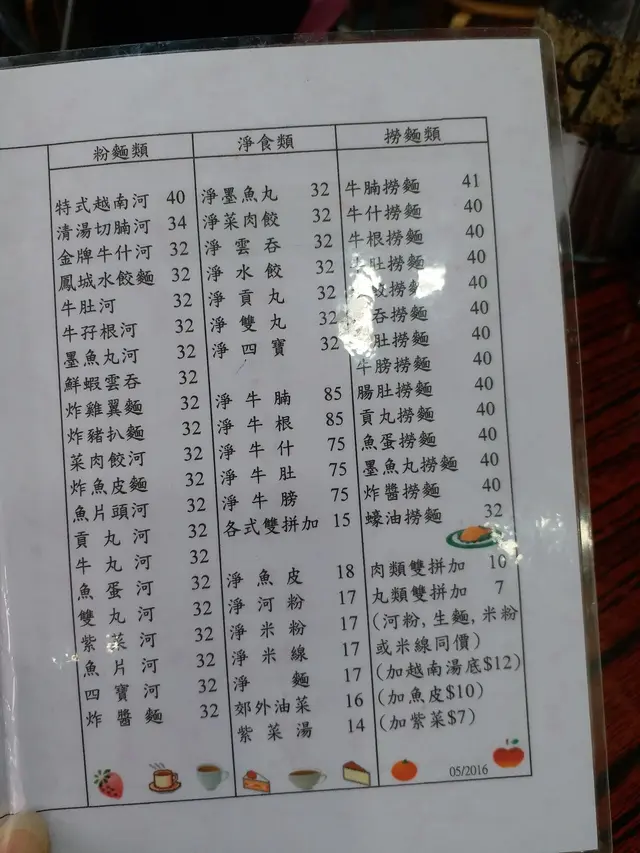 粉麵類
特式越南河 40
清湯切腩河 34
金牌牛什河 32
鳳城水餃麵 32
牛肚河 32
牛孖根河 32
墨魚丸河 32
鮮蝦雲吞 32
炸雞翼麵 32
炸豬扒麵 32
菜肉餃河 32
炸魚皮麵 32
魚片頭河 32
貢丸河 32
牛丸河 32
魚蛋河 32
雙丸河 32
紫菜河 32
魚片河 32
四寶河 32
炸醬麵 32
淨食類
淨墨魚丸 32
淨菜肉餃 32
淨雲吞 32
淨水餃 32
淨貢丸 32
淨雙丸 32
淨四寶 32
淨牛腩 85
淨牛根 85
淨牛什 75
淨牛肚 75
淨牛膀 75
各式雙拼加 15
淨魚皮 18
淨河粉 17
淨米粉 17
淨米線 17
淨麵 17
郊外油菜 16
紫菜湯 14
撈麵類
牛腩撈麵 41
牛什撈麵 40
牛根撈麵 40
肚撈麵 40
撈麵 40
吞撈麵 40
肚撈麵 40
牛膀撈麵 40
腸肚撈麵 40
貢丸撈麵 40
魚蛋撈麵 40
墨魚丸撈麵 40
炸醬撈麵 40
蠔油撈麵 32
肉類雙拼加 10
丸類雙拼加 7
(河粉,生麵,米粉
或米線同價)
(加越南湯底$12)
(加魚皮$10)
(加紫菜$7)
05/2016
9